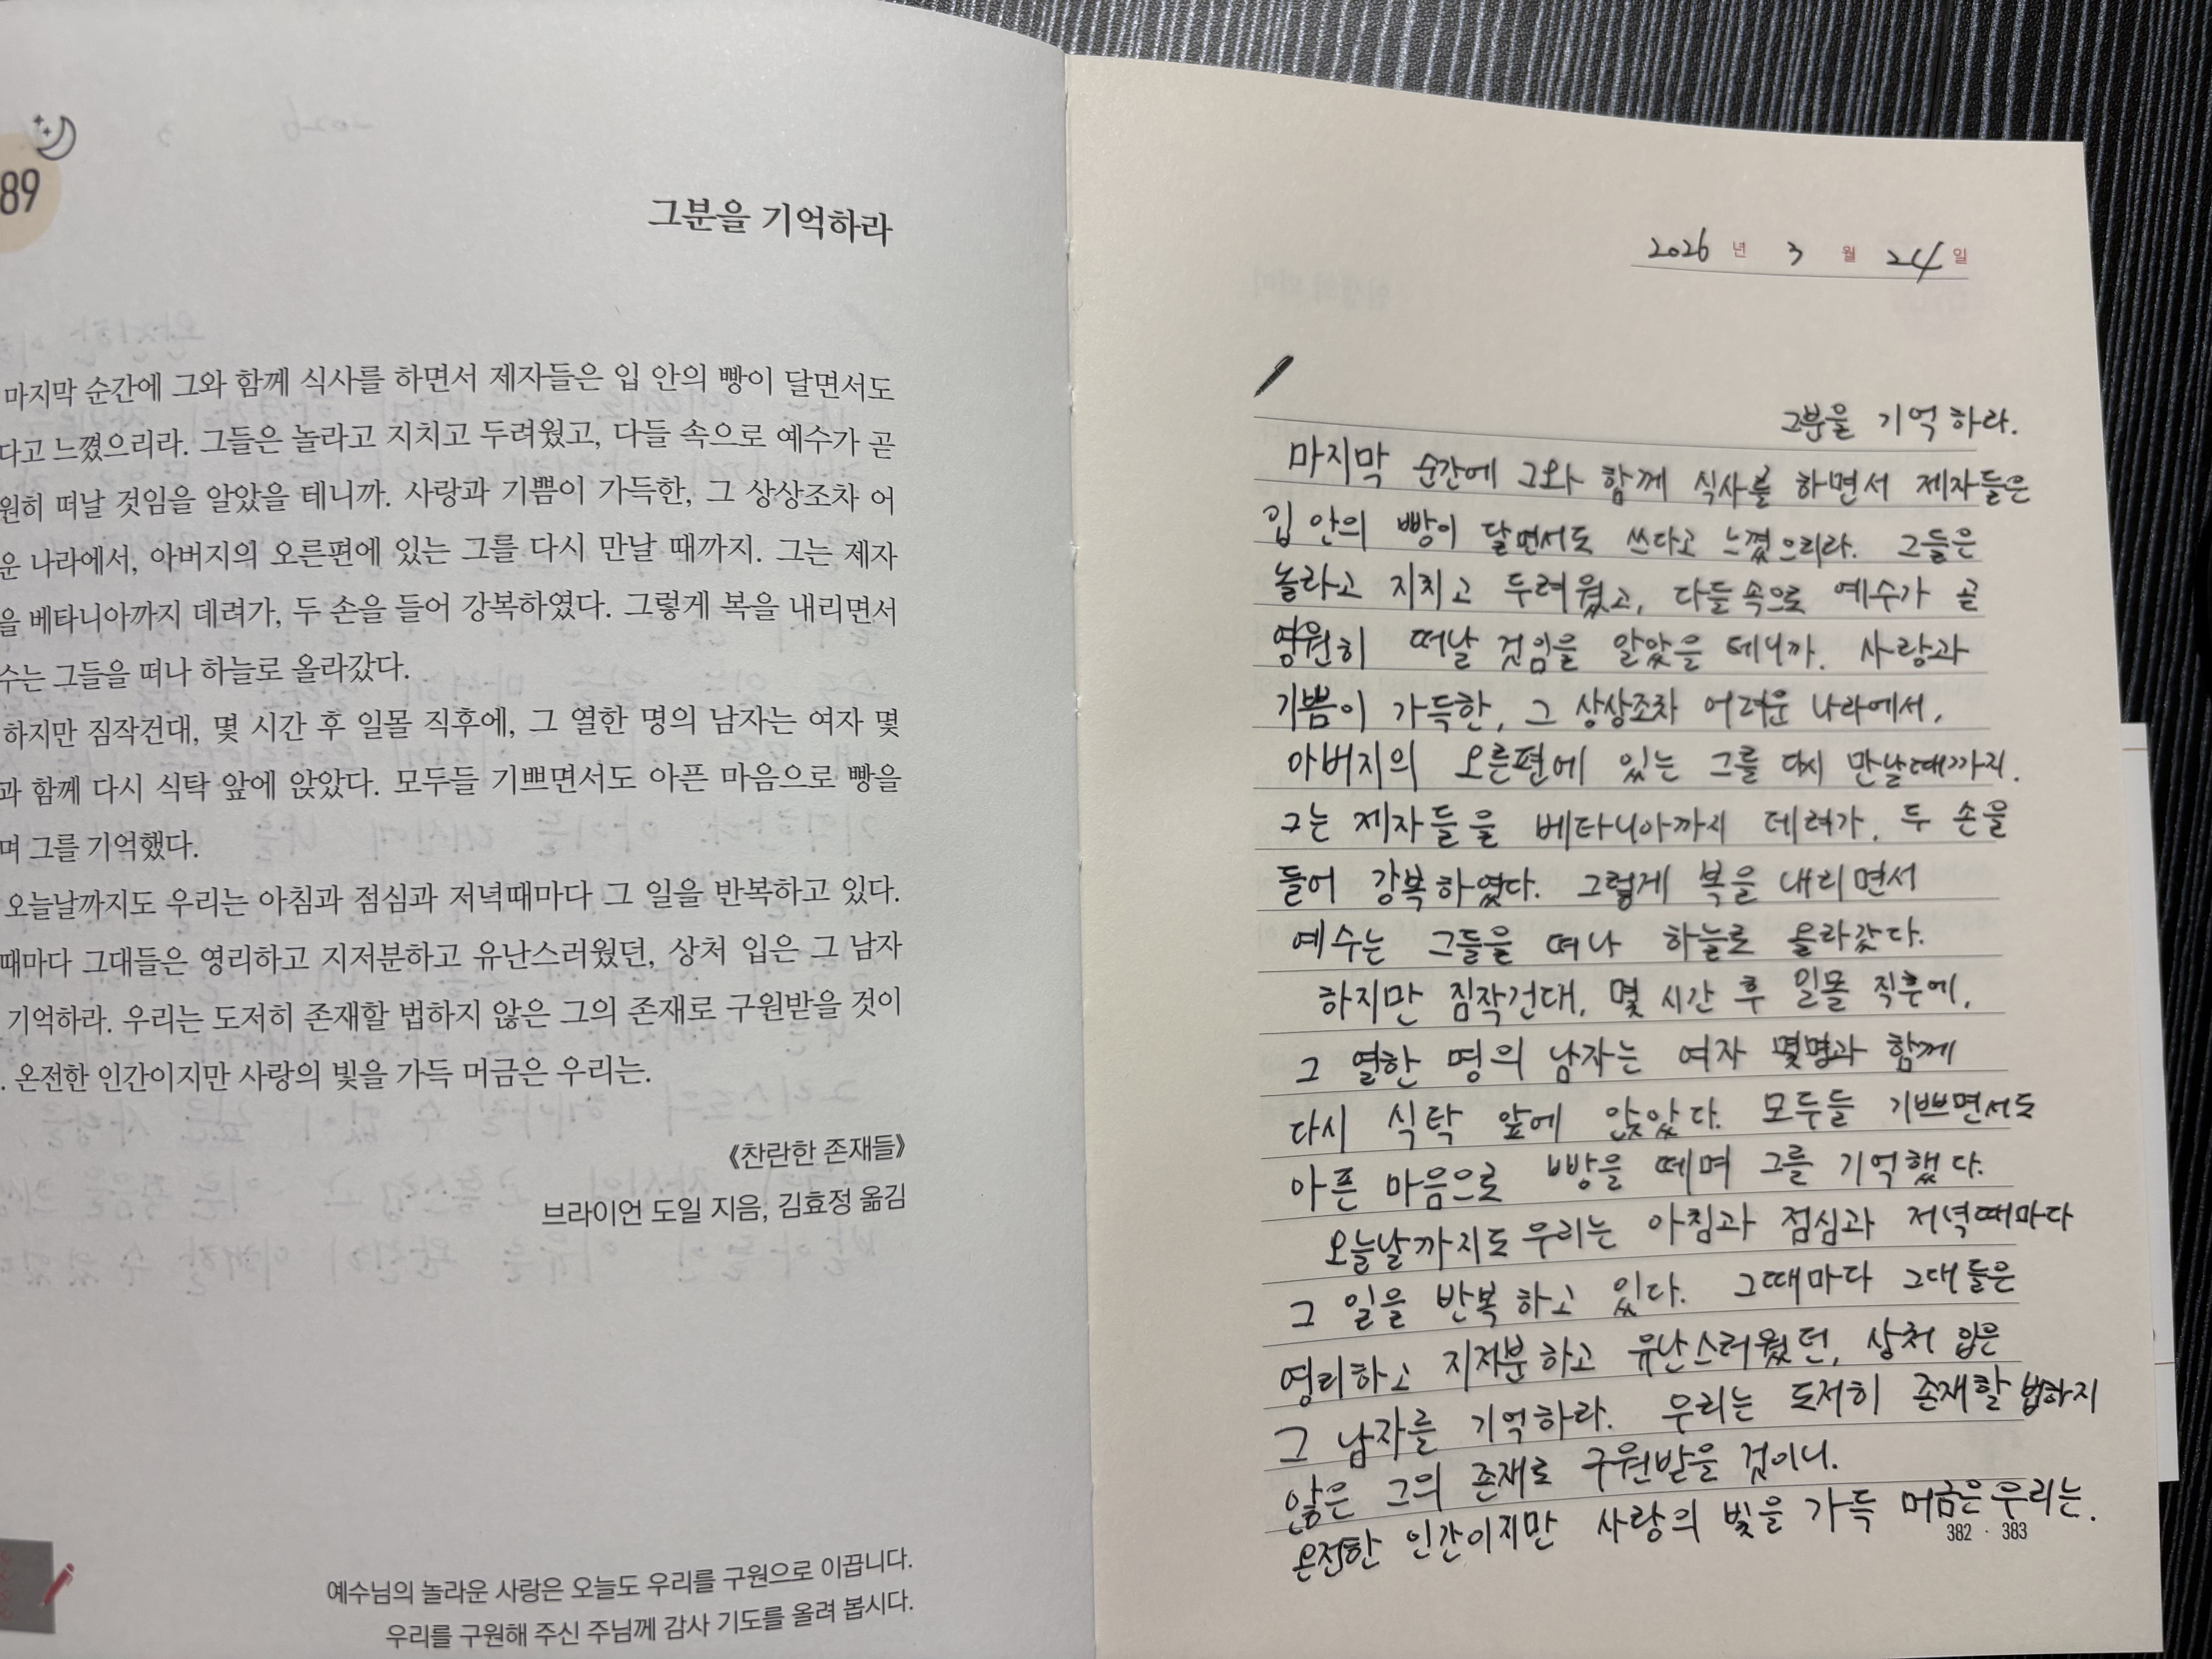 89
그분을 기억하라
마지막 순간에 그와 함께 식사를 하면서 제자들은 입 안의 빵이 달면서도
다고 느꼈으리라. 그들은 놀라고 지치고 두려웠고, 다들 속으로 예수가 곧
원히 떠날 것임을 알았을 테니까. 사랑과 기쁨이 가득한, 그 상상조차 어
운 나라에서, 아버지의 오른편에 있는 그를 다시 만날 때까지. 그는 제자
을 베타니아까지 데려가, 두 손을 들어 강복하였다. 그렇게 복을 내리면서
수는 그들을 떠나 하늘로 올라갔다.
하지만 짐작건대, 몇 시간 후 일몰 직후에, 그 열한 명의 남자는 여자 몇
과 함께 다시 식탁 앞에 앉았다. 모두들 기쁘면서도 아픈 마음으로 빵을
며 그를 기억했다.
오늘날까지도 우리는 아침과 점심과 저녁때마다 그 일을 반복하고 있다.
때마다 그대들은 영리하고 지저분하고 유난스러웠던, 상처 입은 그 남자
기억하라. 우리는 도저히 존재할 법하지 않은 그의 존재로 구원받을 것이
. 온전한 인간이지만 사랑의 빛을 가득 머금은 우리는.
《찬란한 존재들》
브라이언 도일 지음, 김효정 옮김
예수님의 놀라운 사랑은 오늘도 우리를 구원으로 이끕니다.
우리를 구원해 주신 주님께 감사 기도를 올려 봅시다.
2026 년 3 월 24 일
그분을 기억하라.
마지막 순간에 그와 함께 식사를 하면서 제자들은
입 안의 빵이 달면서도 쓰다고 느꼈으리라. 그들은
놀라고 지치고 두려웠고, 다들 속으로 예수가 곧
영원히 떠날 것임을 알았을 테니까. 사랑과
기쁨이 가득한, 그 상상조차 어려운 나라에서,
아버지의 오른편에 있는 그를 다시 만날때까지.
그는 제자들을 베타니아까지 데려가, 두 손을
들어 강복하였다. 그렇게 복을 내리면서
예수는 그들을 떠나 하늘로 올라갔다.
하지만 짐작건대, 몇 시간 후 일몰 직후에,
그 열한 명의 남자는 여자 몇명과 함께
다시 식탁 앞에 앉았다. 모두들 기쁘면서도
아픈 마음으로 빵을 떼며 그를 기억했다.
오늘날까지도 우리는 아침과 점심과 저녁때마다
그 일을 반복하고 있다. 그때마다 그대들은
영리하고 지저분하고 유난스러웠던, 상처 입은
그 남자를 기억하라. 우리는 도저히 존재할 법하지
않은 그의 존재로 구원받을 것이니.
온전한 인간이지만 사랑의 빛을 가득 머금은 우리는.
382 · 383